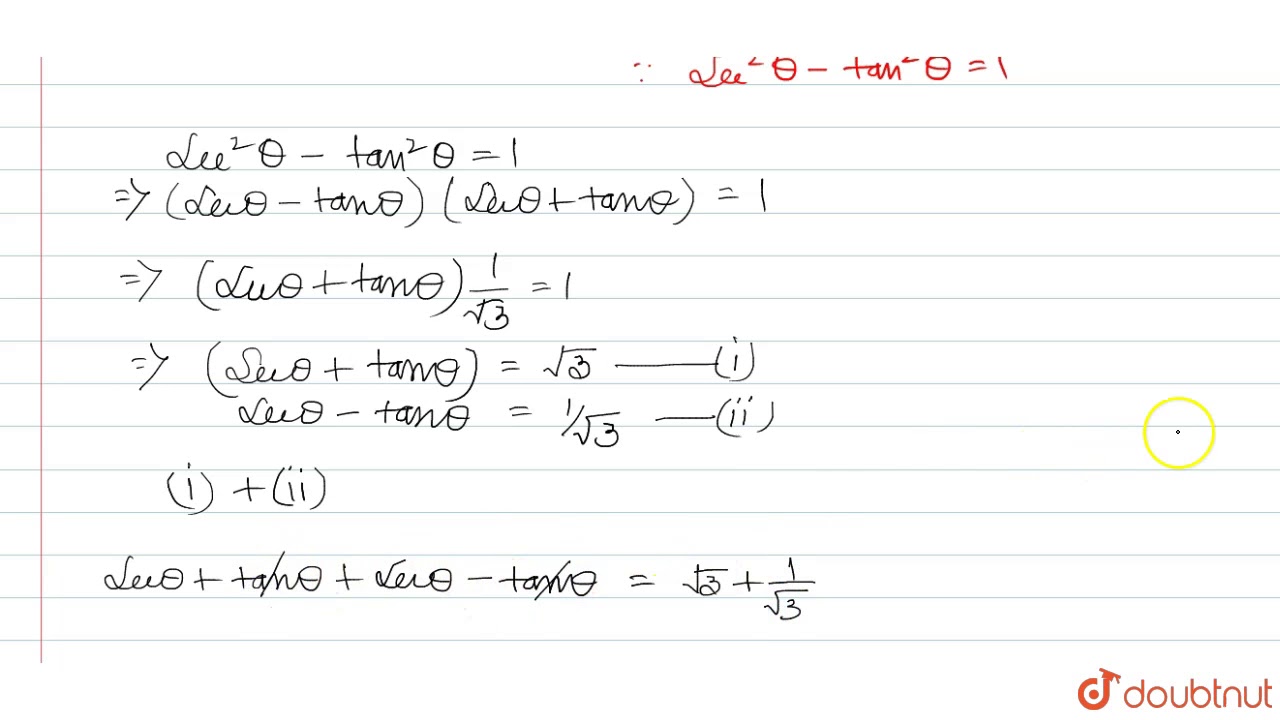 ∵ sec²θ - tan²θ = 1
sec²θ - tan²θ = 1
=> (secθ - tanθ) (secθ + tanθ) = 1
=> (secθ + tanθ) 1/√3 = 1
=> (secθ + tanθ) = √3 —— (i)
secθ - tanθ = 1/√3 — (ii)
(i) + (ii)
secθ + tanθ + secθ - tanθ = √3 + 1/√3
doubtnut